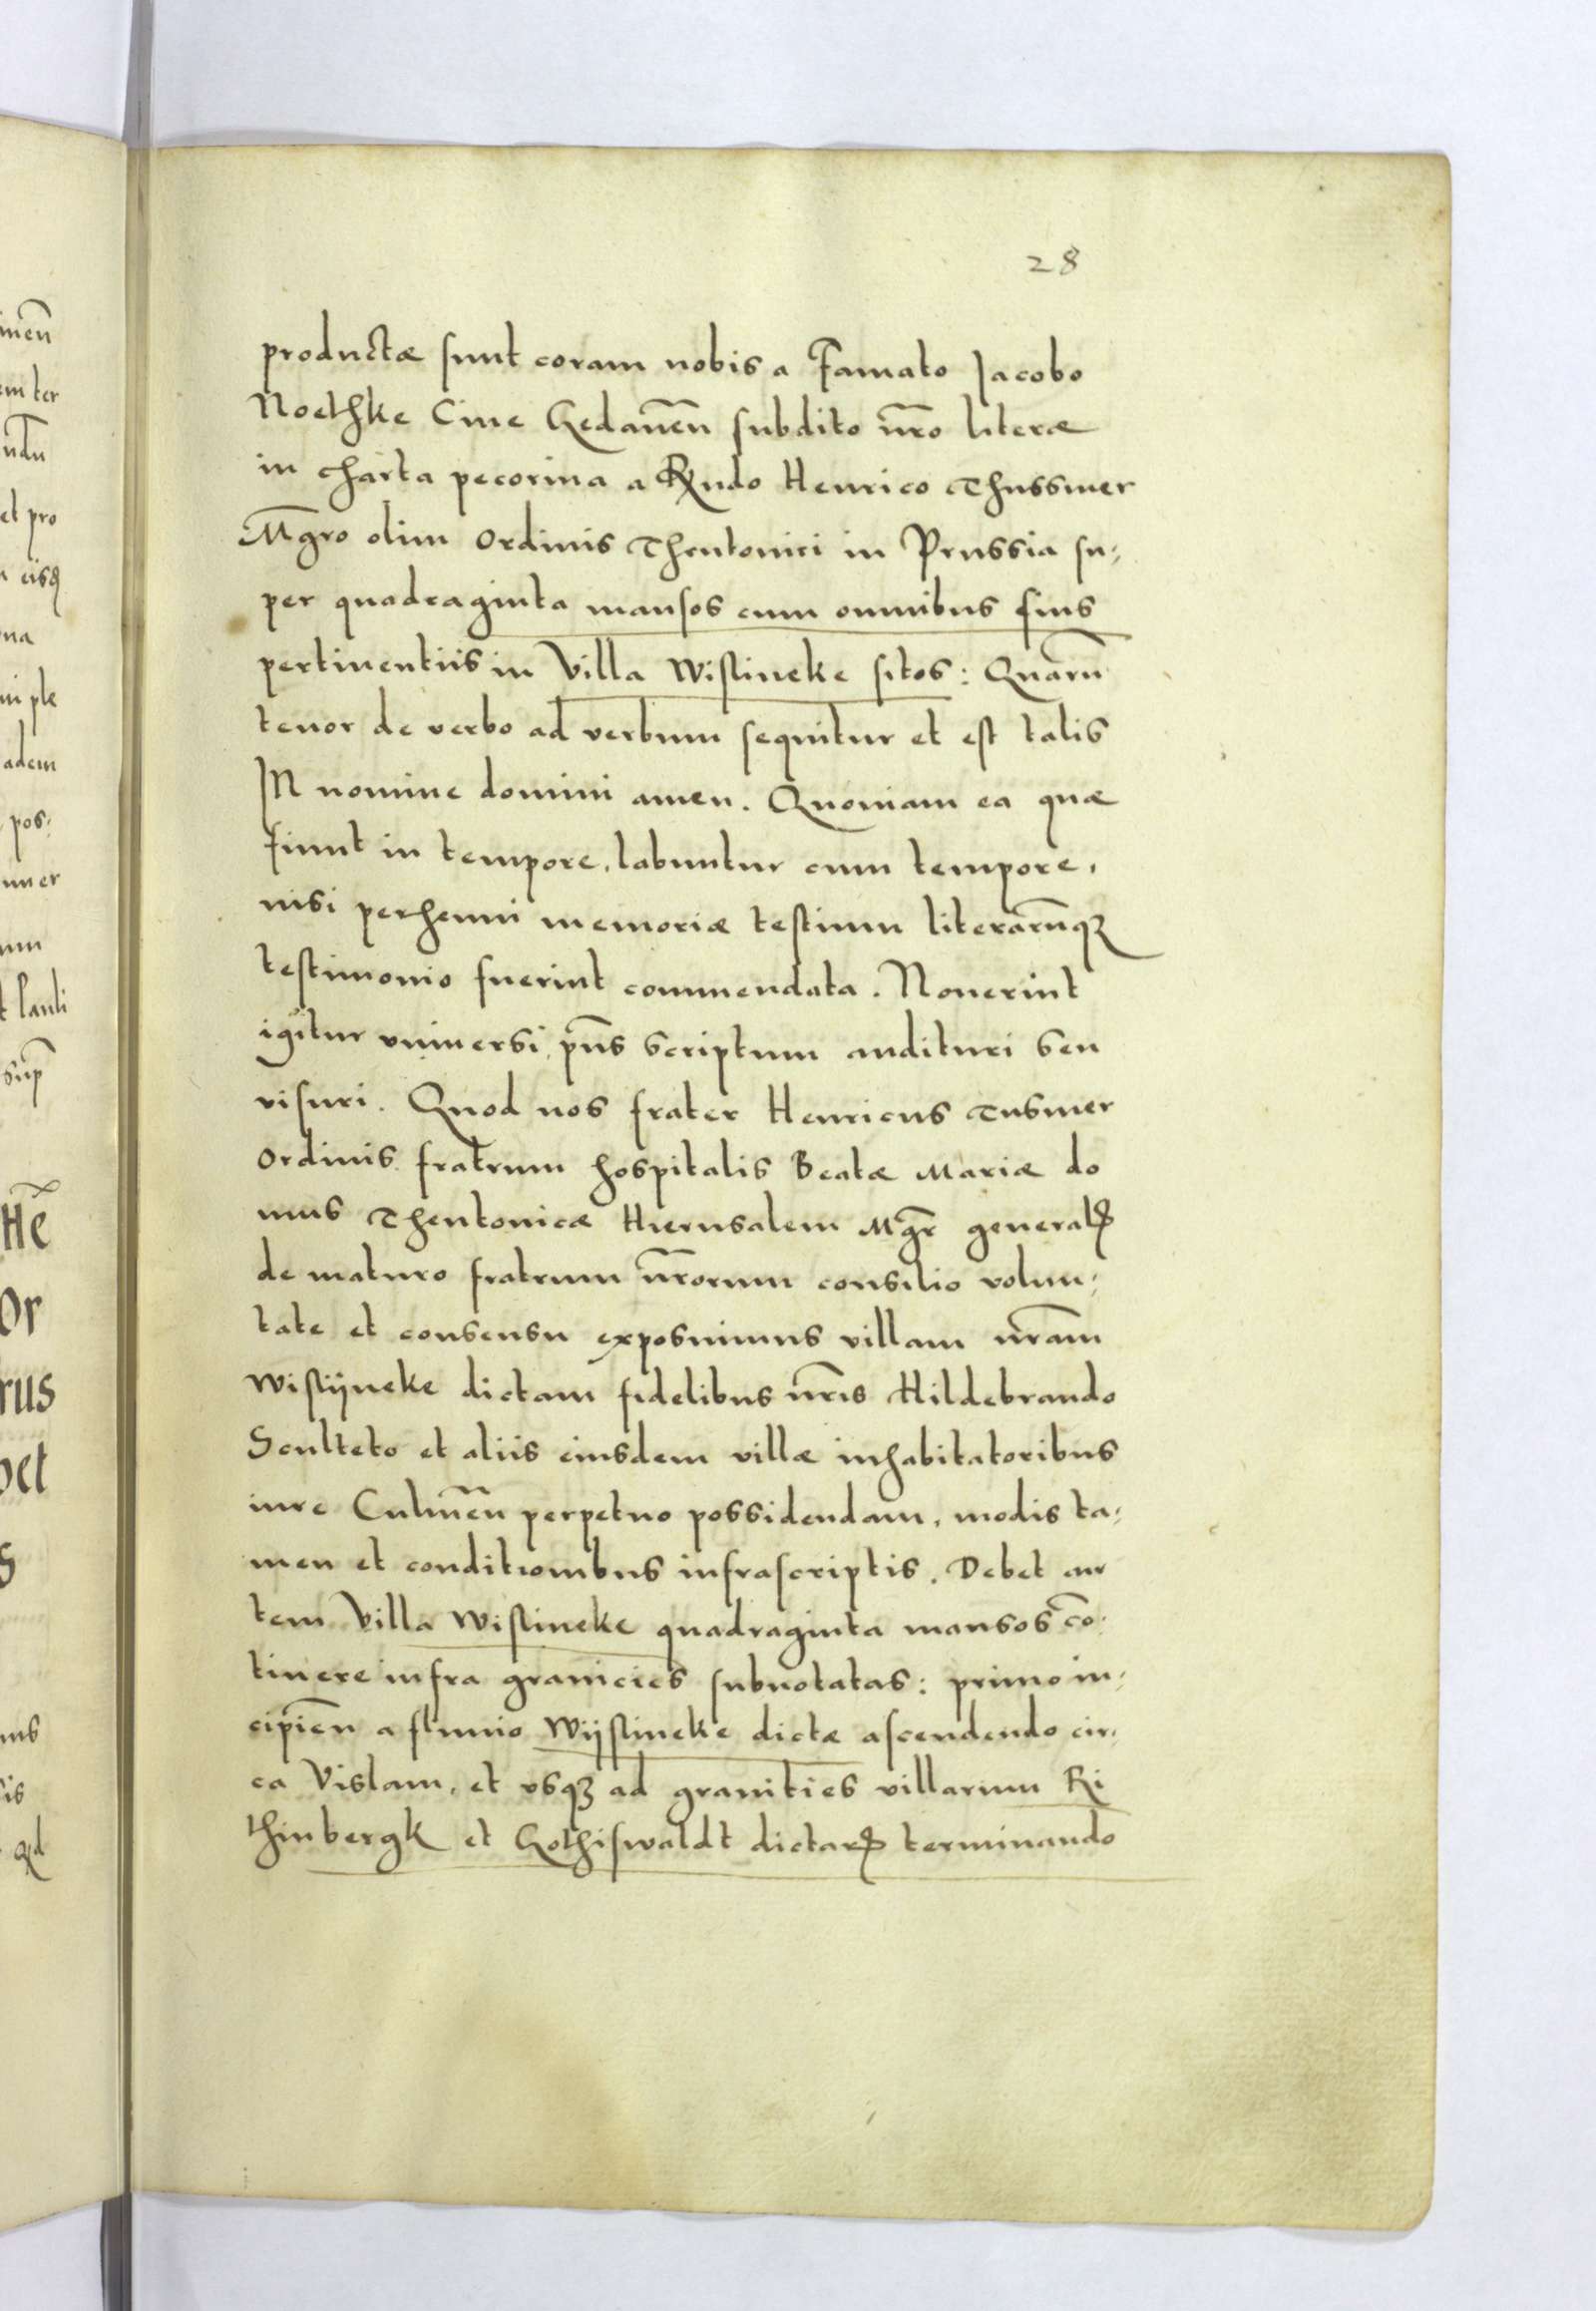 28
productæ sunt coram nobis a Famato Jacobo
Noethke Ciue Gedanēn subdito nr̄o literæ
in charta pecorina a Rn̄do Henrico Thussmer
Mgr̄o olim Ordinis Theutonici in Prussia su-
per quadraginta mansos cum omnibus suis
pertinentiis in Villa Wistineke sitos: Quarū
tenor de verbo ad verbum sequitur et est talis
IN nomine domini amen. Quoniam ea quæ
fiunt in tempore, labuntur cum tempore,
nisi perhenni memoriæ testium literarūqꝫ
testimonio fuerint commendata. Nouerint
igitur vniuersi pn̄s scriptum audituri seu
visuri. Quod nos frater Henricus Tusmer
Ordinis fratrum hospitalis Beatæ Mariæ do
mus Theutonicæ Hierusalem Mgr̄ generalꝭ
de maturo fratrum nr̄orum consilio volun-
tate et consensu exposuimus villam nr̄am
Wistijneke dictam fidelibus nr̄is Hildebrando
Sculteto et aliis eiusdem villæ inhabitatoribus
iure Culmēn perpetuo possidendam, modis ta-
men et conditionibus infrascriptis. Debet au
tem Villa Wistineke quadraginta mansos cō-
tinere infra granicies subnotatas: primo in-
cipiēn a fluuio Wijstineke dictæ ascendendo cir-
ca Vislam, et vsqꝫ ad granities villarum Ri
thinbergk et Gothiswaldt dictarꝝ terminando
mēn
em ter
et pro
eisꝺ
na
ni ple
adem
pos-
uner
um
t lauli
sup̄
Hē
Or
rus
bet
s
ms
is
qd